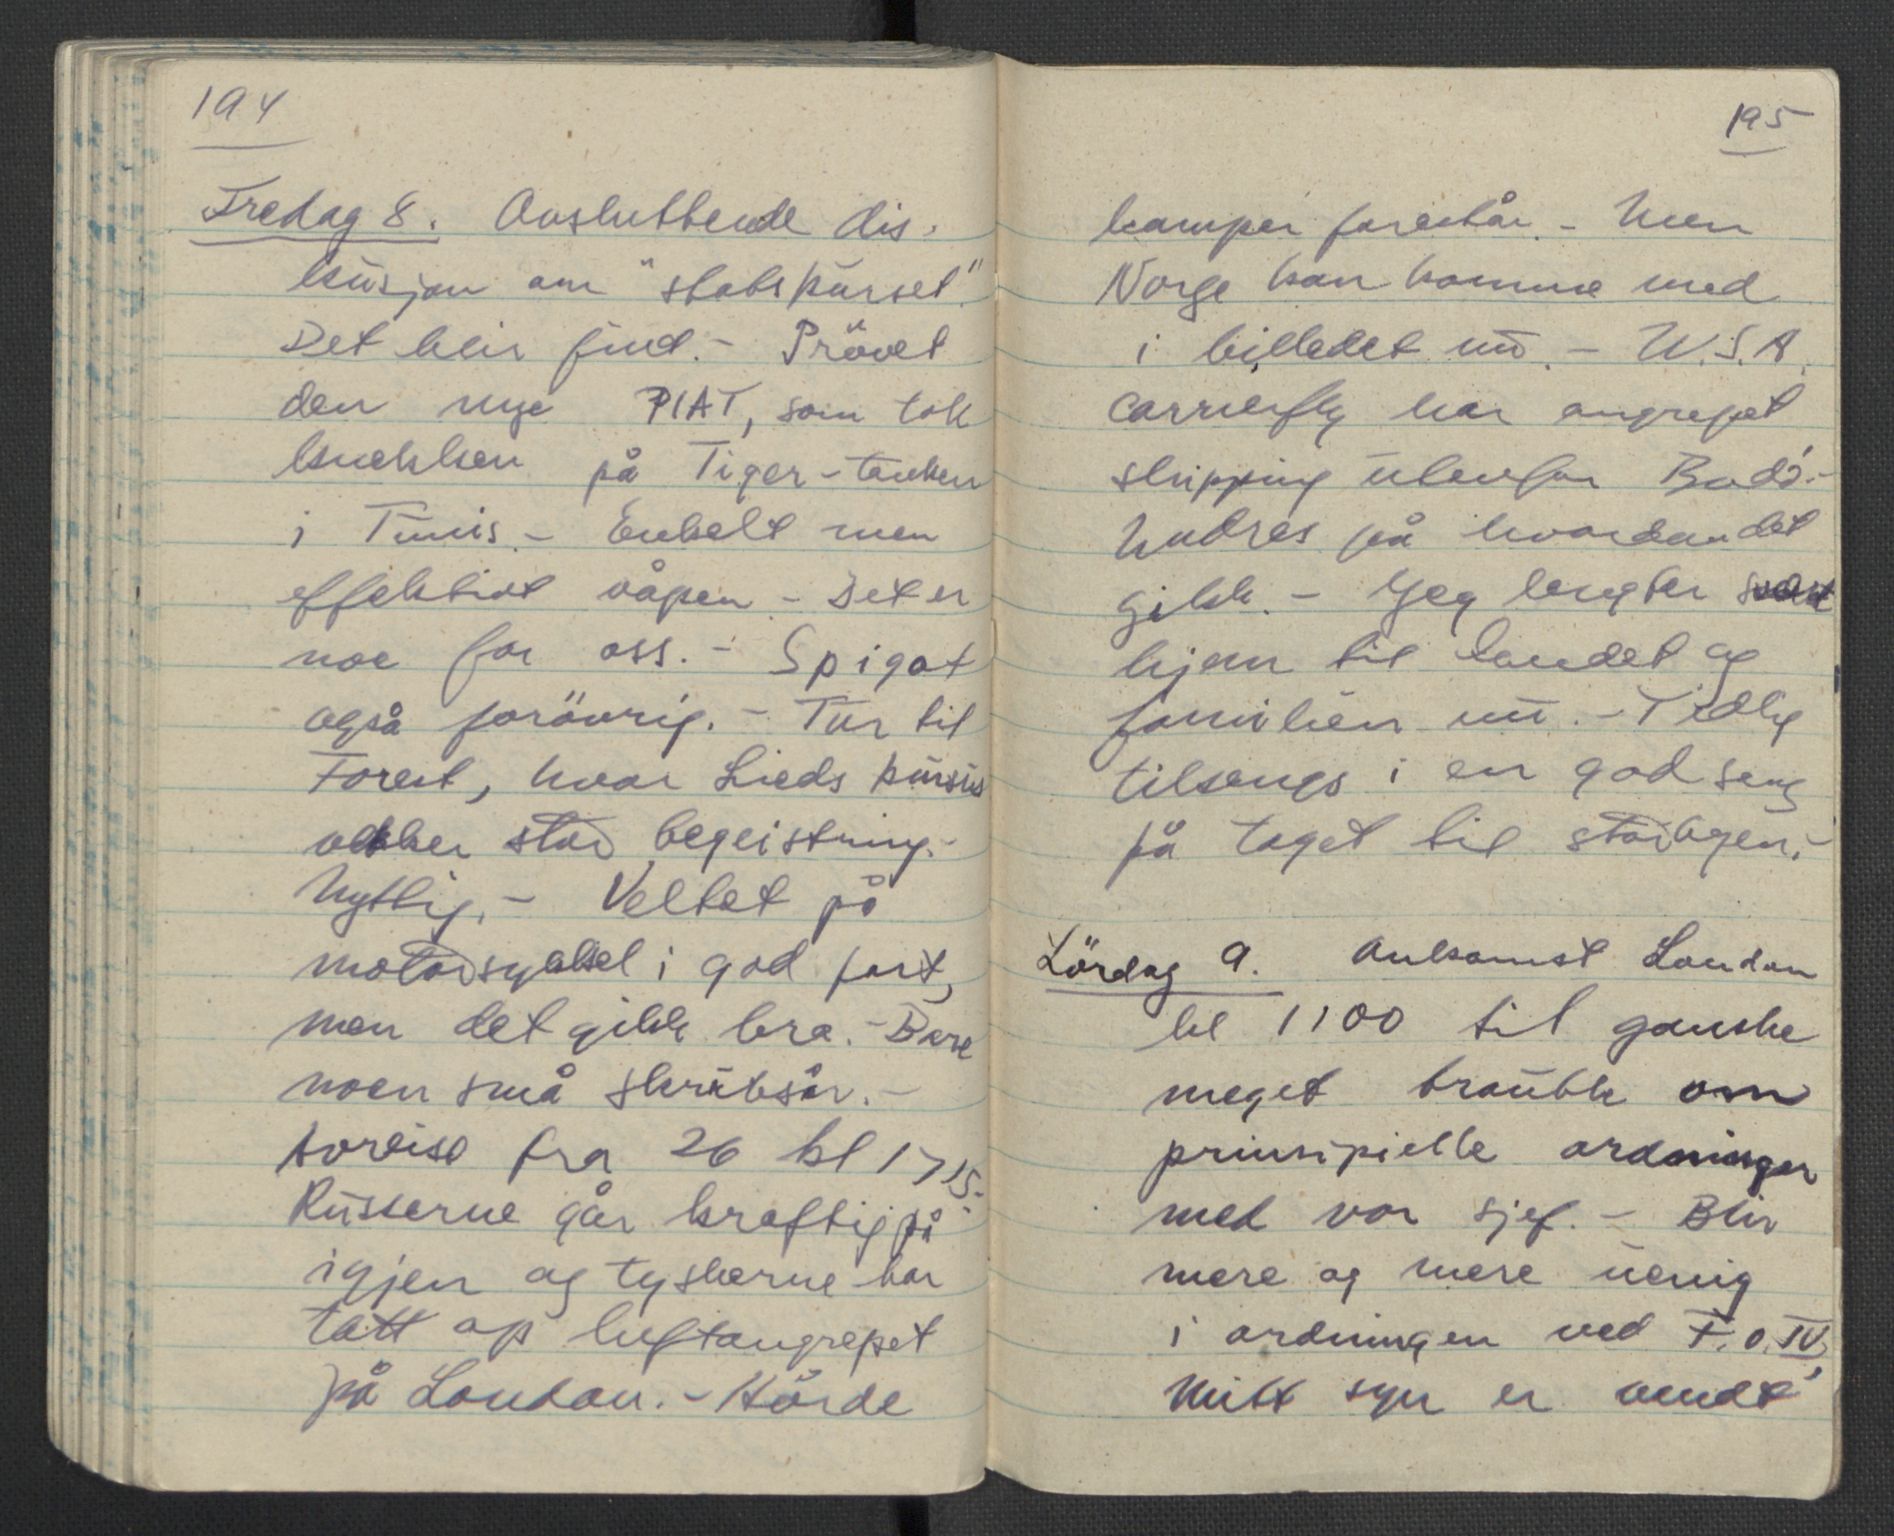 194
Fredag 8. Avsluttende dis-
kusjon om "stabskurset".
Det blir fint. - Prövet
den nye PIAT, som tok
knekken på Tiger-tanken
i Tunis. - Enkelt men
effektivt våpen - Det er
noe for oss. - Spigot
også forövrig. - Tur til
Forest, hvor Lieds kursus
vekker stor begeistring. -
Nyttig. - Veltet på
motorsykkel i god fart,
men det gikk bra. - Bare
noen små skrubsår. -
Avreise fra 26 kl 1715. -
Russerne går kraftig på
igjen og tyskerne har
tatt op luftangrepet
på London. - Hörde
195
kamper forestår. - Men
Norge kan komme med
i billedet nu. - U.S.A.
carrierfly har angrepet
shipping utenfor Bodö. -
Undres på hvordan det
gikk. - Jeg lengter svært
hjem til landet og
familien nu. - Tidlig
tilsengs i en god seng
på toget til storbyen. -
Lördag 9. Ankomst London
kl 1100 til ganske
meget trouble om
prinsipielle ordninger
med vor sjef. - Blir
mere og mere uenig
i ordningen ved F.O. IV,
Mitt syn er vendt